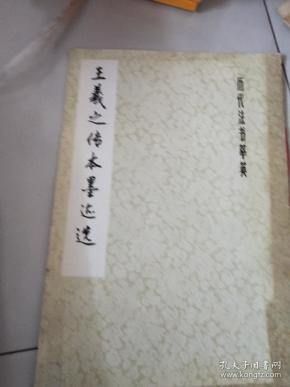 历代法书萃英
王羲之传本墨迹选
孔夫子旧书网